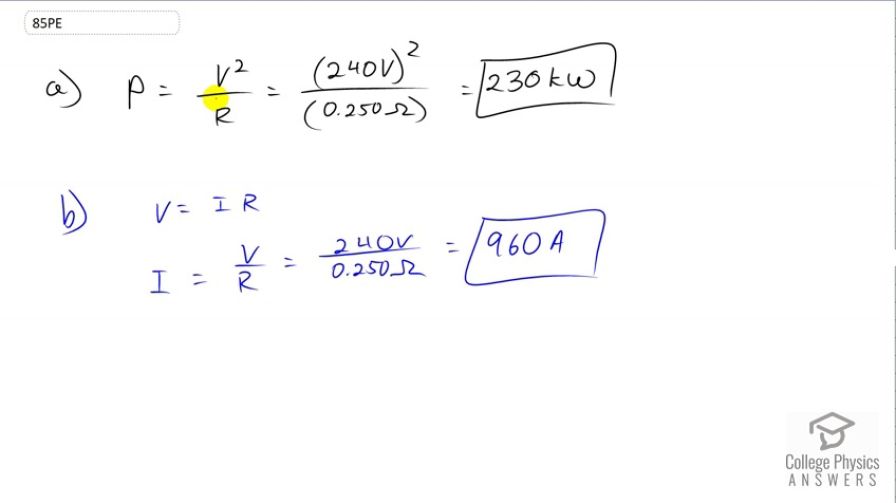 85PE
a) P = V²/R = (240V)²/(0.250Ω) = 230kW
b) V = IR
I = V/R = 240V/0.250Ω = 960A
College Physics
ANSWERS